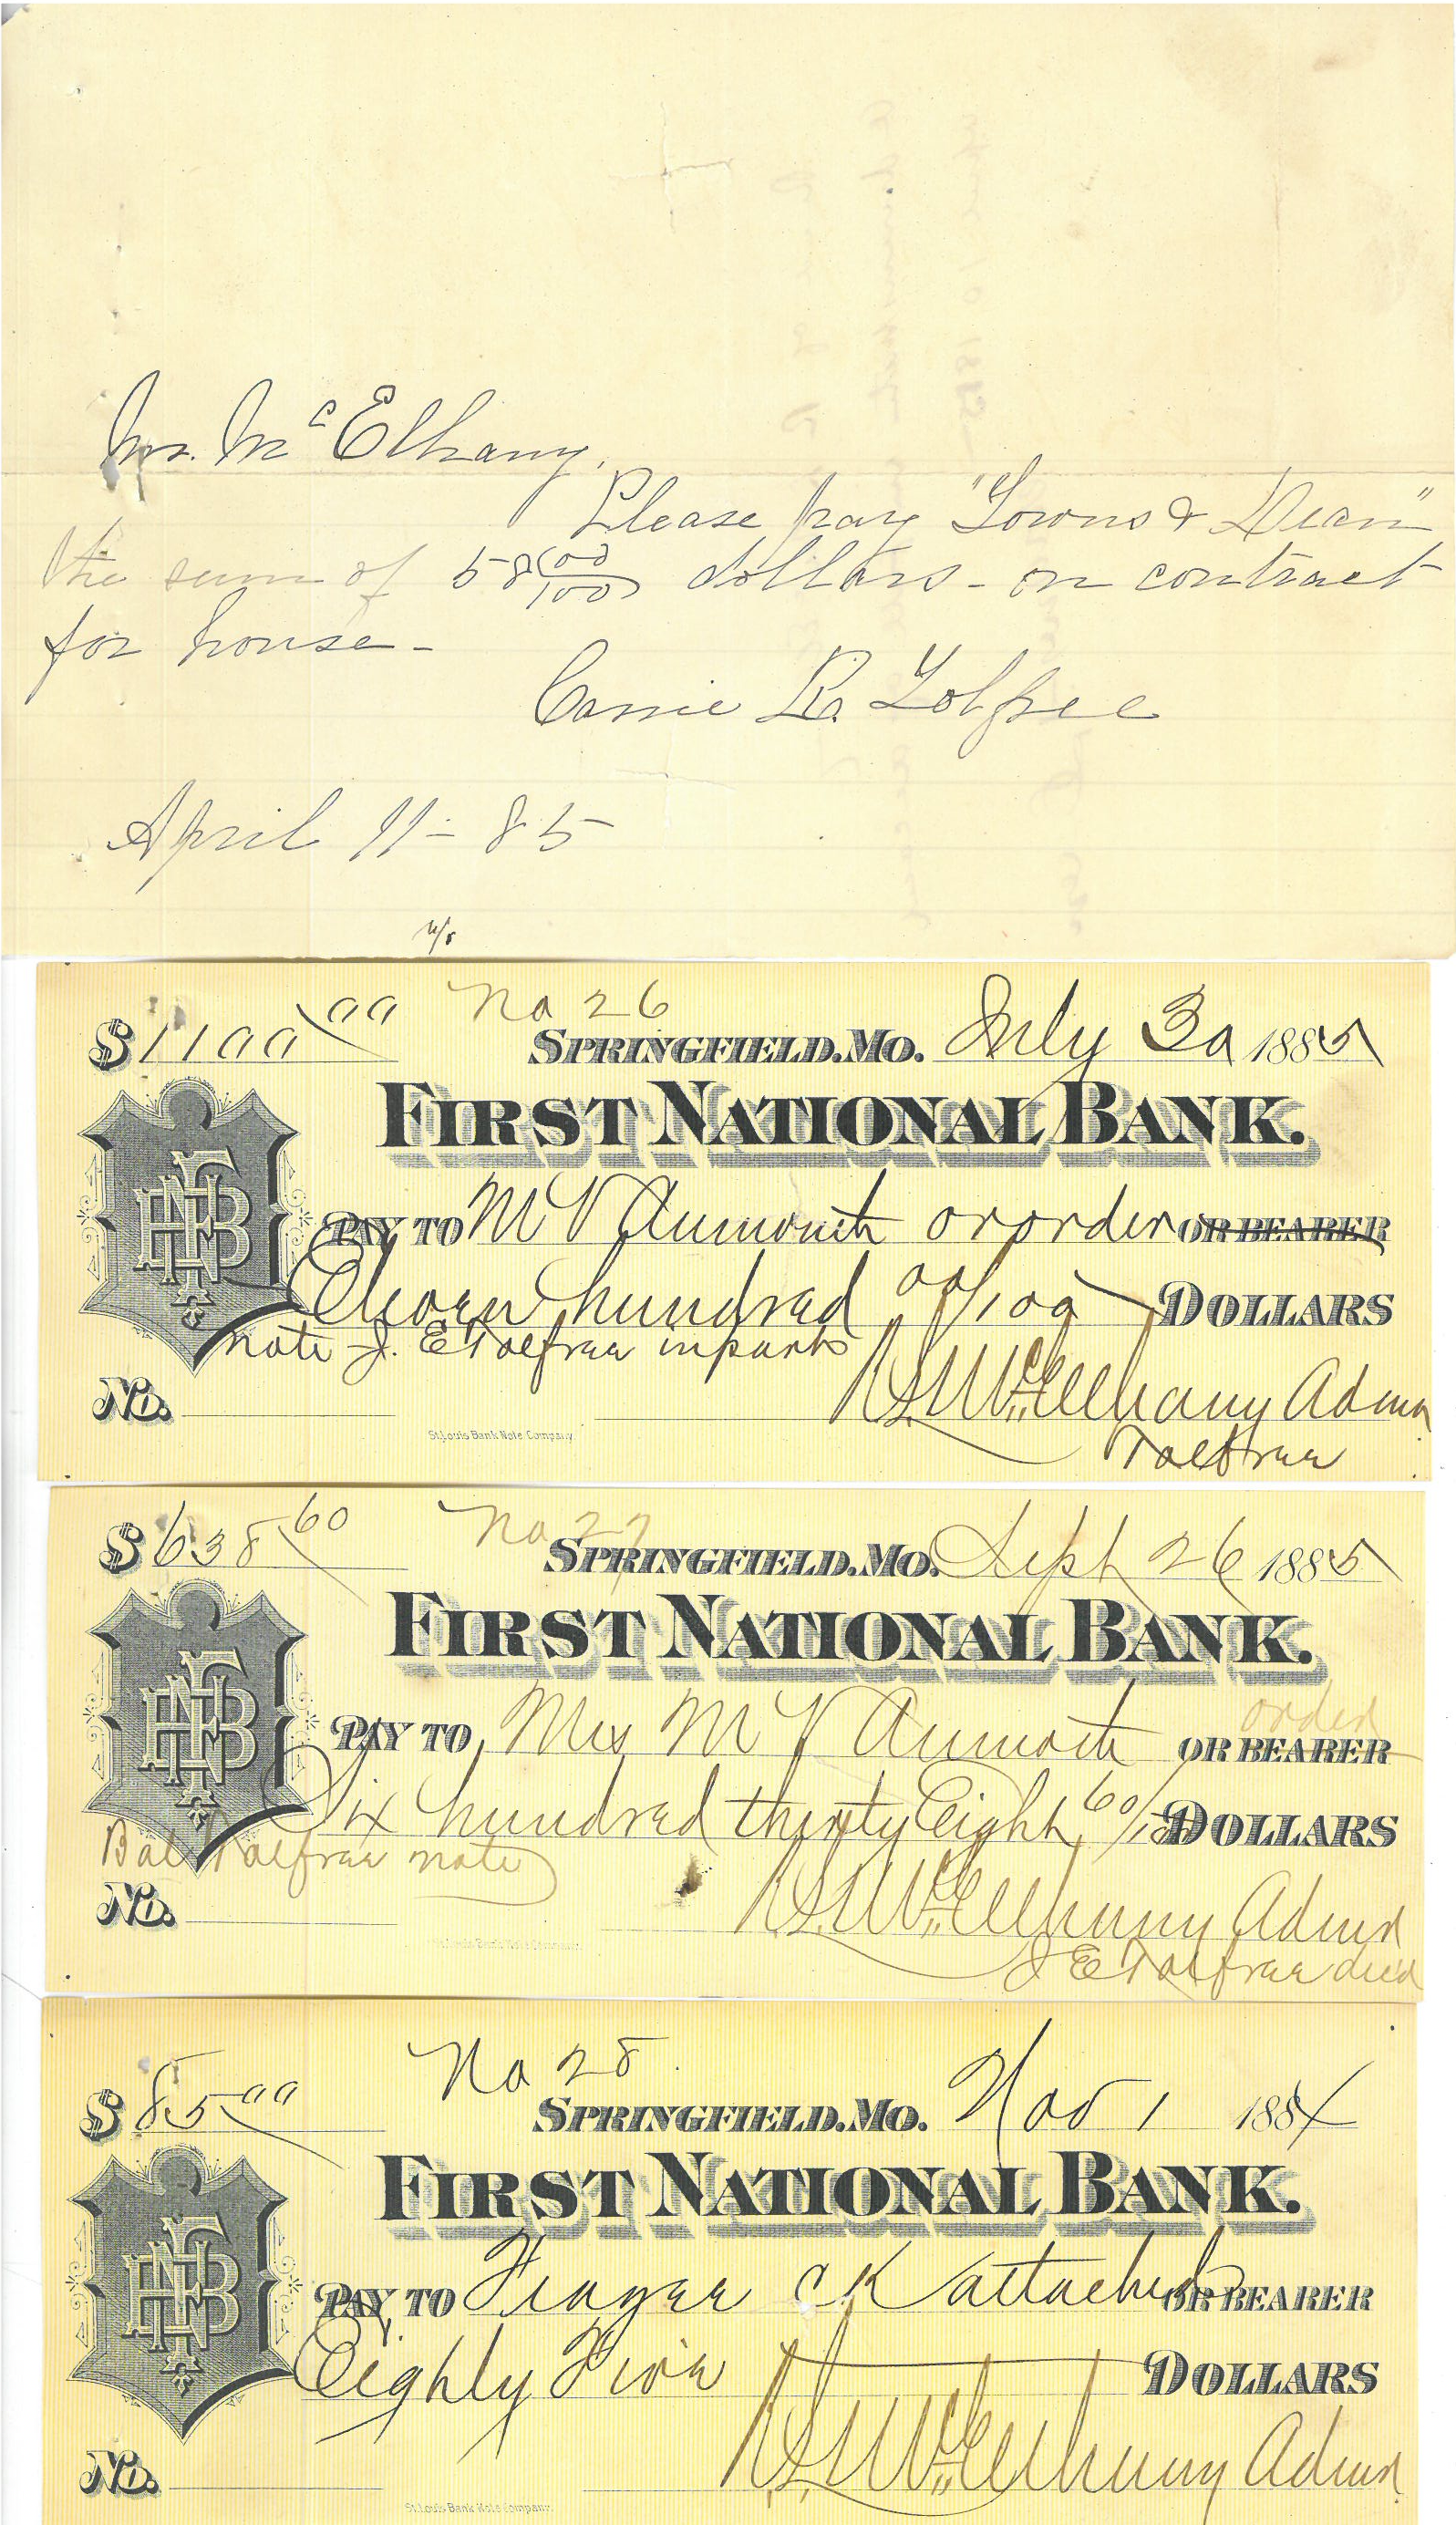 Mr. McElhany,
Please pay "Towns & Dean"
the sum of 58 00/100 dollars - on contract
for house -
Carrie R. Tolfree
April 11 - 85
No 26
$1100 00
SPRINGFIELD. MO. July 30 1885
FIRST NATIONAL BANK.
PAY TO M V Aumoth or order OR BEARER
Eleven hundred 00/100 DOLLARS
note J. E Tolfree in part
R L McElhany Admr
Tolfree
No.
St. Louis Bank Note Company.
No 27
$638 60
SPRINGFIELD. MO. Sept 26 1885
FIRST NATIONAL BANK.
order
PAY TO Mrs M V Aumoth OR BEARER
Six hundred thirty Eight 60/100 DOLLARS
Bal Tolfree note
R L McElhany Admr
J E Tolfree decd
No.
St. Louis Bank Note Company.
No 28
$85 00
SPRINGFIELD. MO. Nov 1 1884
FIRST NATIONAL BANK.
PAY TO CK attached OR BEARER
Eighty Five DOLLARS
R L McElhany Admr
No.
St. Louis Bank Note Company.